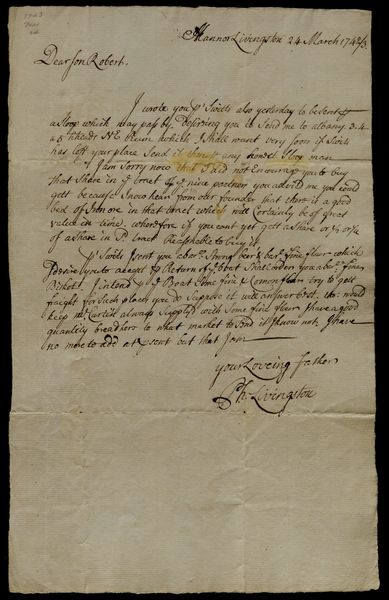 1743
Mar
24
Mannor Livingston 24 March 1742/3.
Dear Son Robert.
I wrote you pr Switts also yesterday to be sent pr
a Sloop which may pass by. Desireing you to Send me to albany 3-4
a 5 hhds Rum which I shall want very soon if Swits
has left your place Send it thereof any honest Sloop man
I am Sorry now that I did not Encourage you to buy
that Share in ye tract of ye nine partners you advised me you could
gett because I now hear from our founder that there is a good
bed of Iron ore in that tract which will Certainly be of great
value in time, wherefore if you can yet gett a share or 1/2 or 1/4
of a share in sd tract Reasonable to buy it.
pr Swits I sent you a bar. Strong beer & bar. fine flour which
Desire you to accept
I intend pr ye Boat Some fine & Comon flour try to get
fraight for Such place you do Suppose it will answer best. I would
keep mr Curtin always Supplyd with Some fine flour I have a good
quantity bread here to what market to Send it I know not. I have
no more to add at psent but that I am
your Loveing father
Ph. Livingston